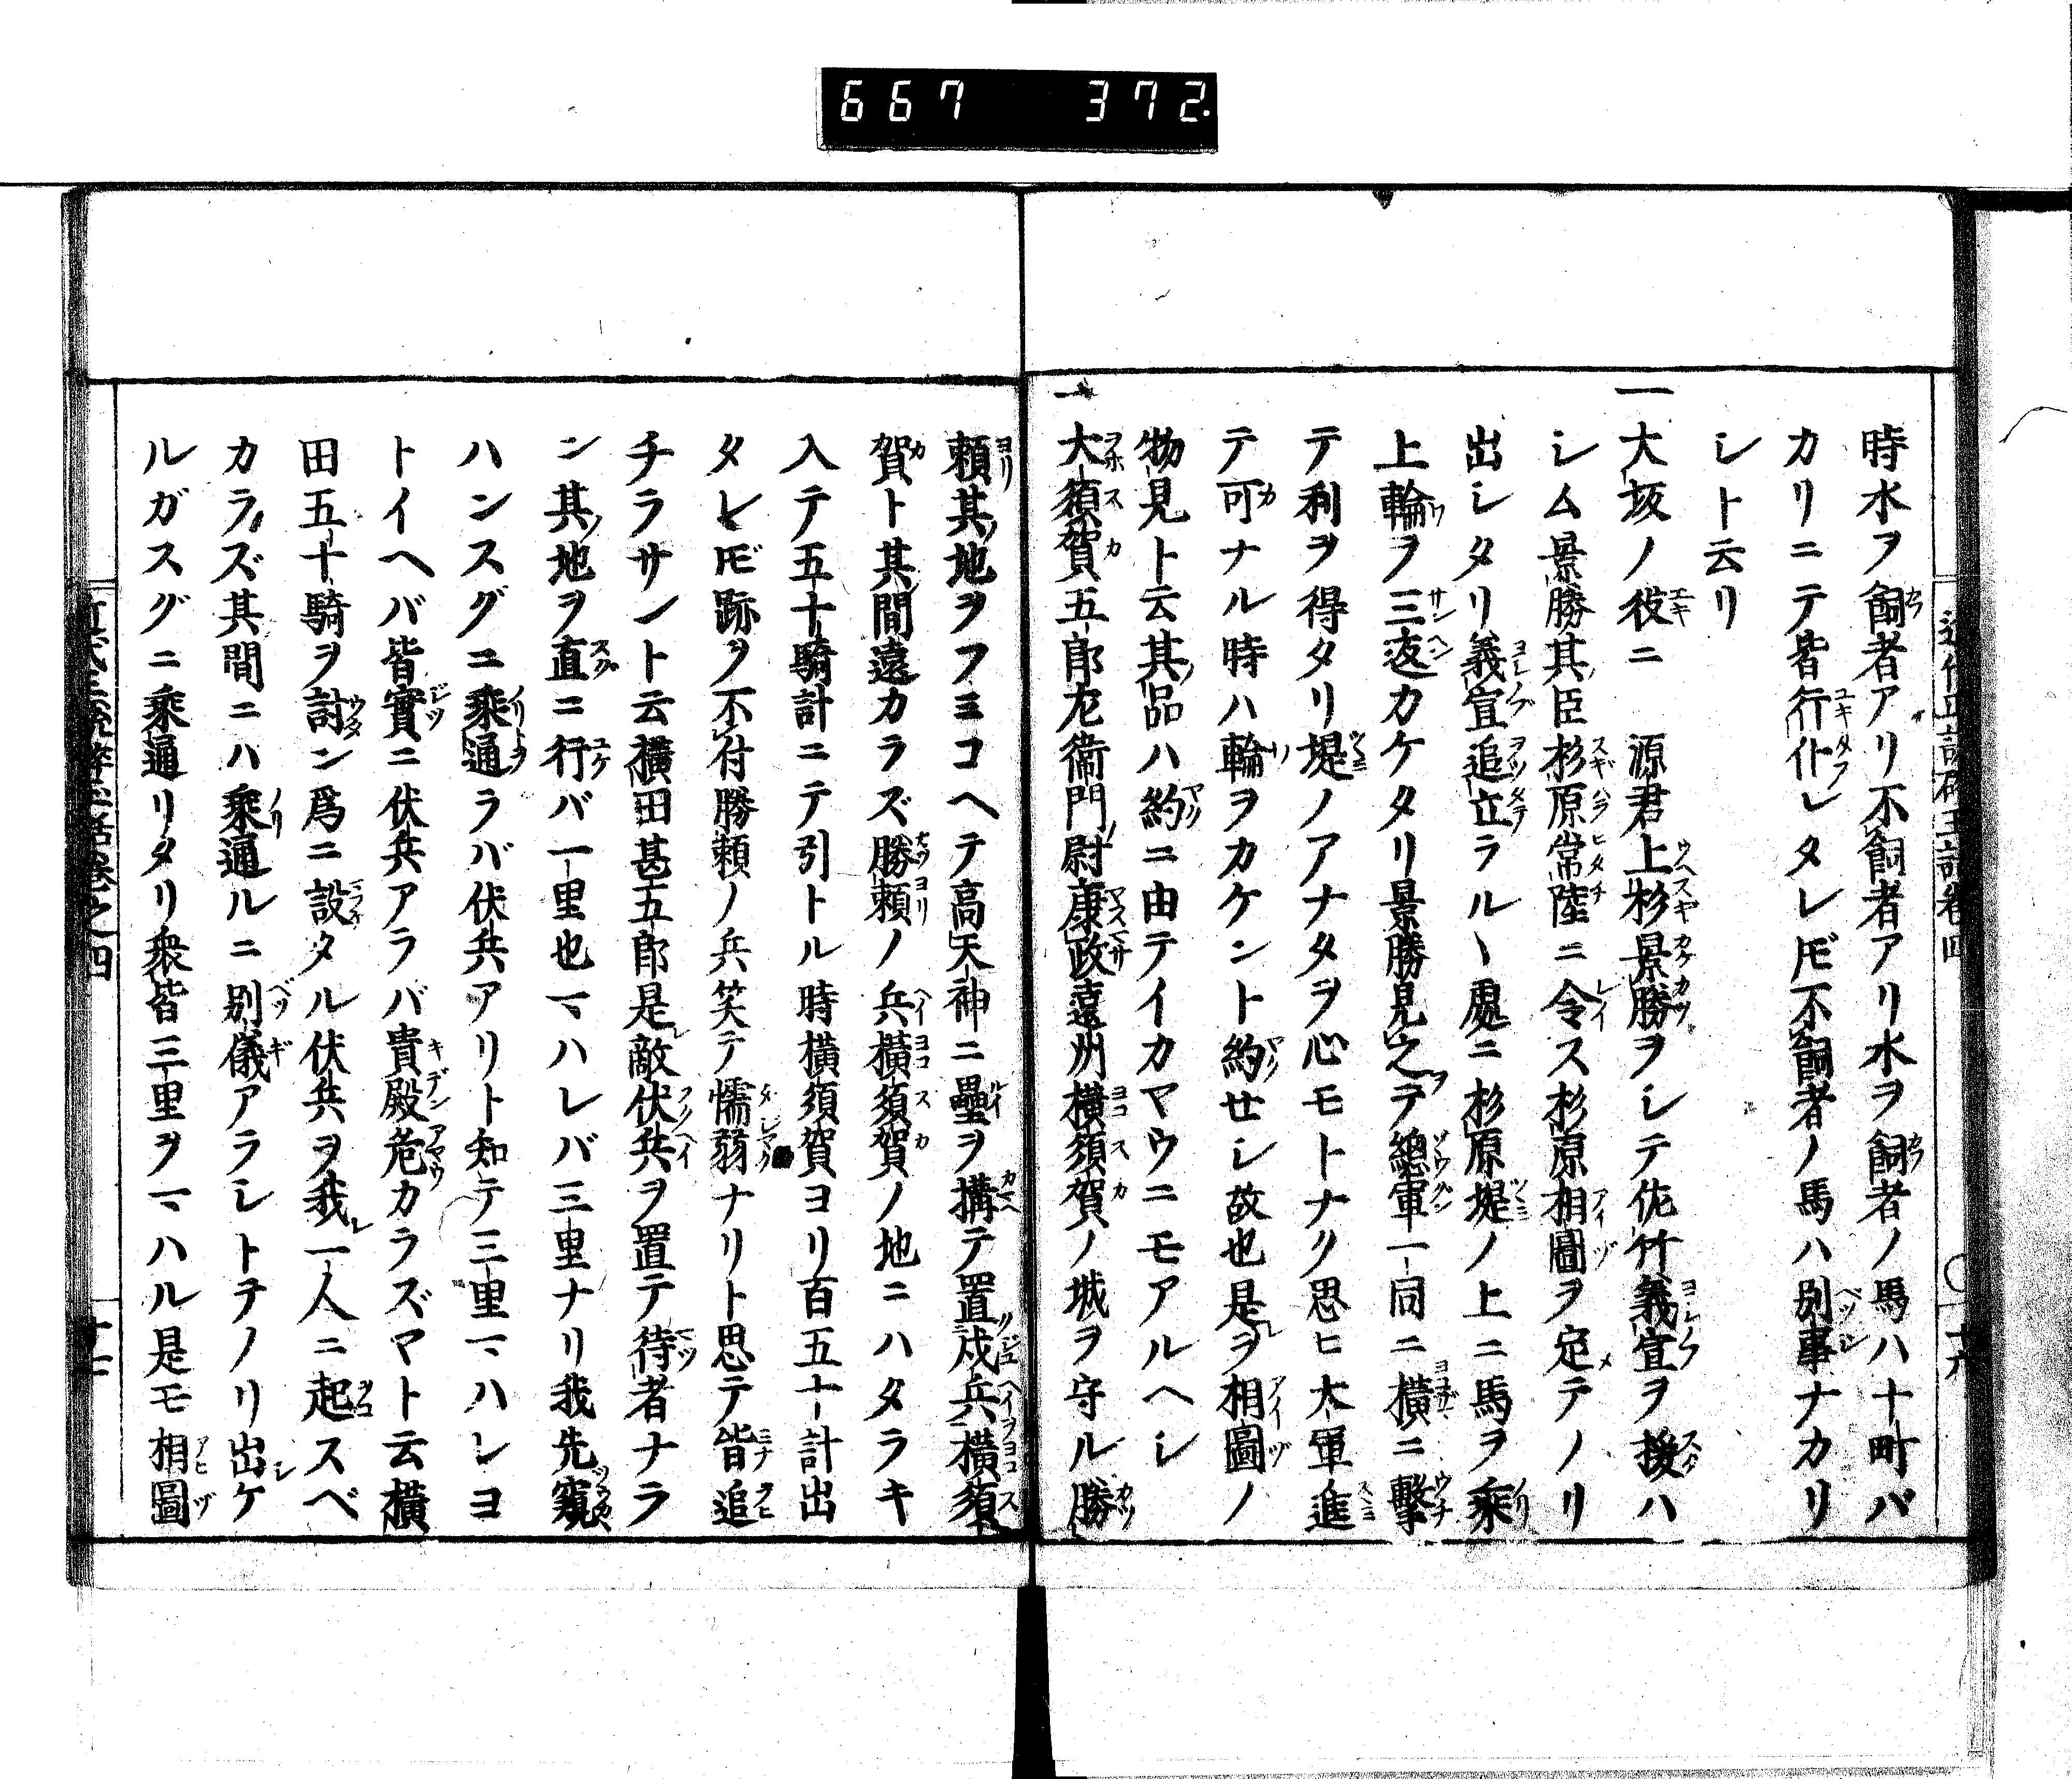 667 372.
時水ヲ飼者アリ不飼者アリ水ヲ飼者ノ馬ハ十町バ
カリニテ皆行仆レタレ𪜈不飼者ノ馬ハ別事ナカリ
シト云リ
一大坂ノ役ニ 源君上杉景勝ヲシテ佐竹義宣ヲ援ハ
シム景勝其臣杉原常陸ニ令ス杉原相圖ヲ定テノリ
出シタリ義宣追立ラルヽ處ニ杉原堤ノ上ニ馬ヲ乘
上輪ヲ三返カケタリ景勝見之テ總軍一同ニ橫ニ擊
テ利ヲ得タリ堤ノアナタヲ心モトナク思ヒ大軍進
テ可ナル時ハ輪ヲカケント約せシ故也是ヲ相圖ノ
物見ト云其品ハ約ニ由テイカマウニモアルヘシ
一大須賀五郎左衞門尉康政遠州橫須賀ノ城ヲ守ル勝
頼其地ヲフミコヘテ高天神ニ壘ヲ搆テ置戍兵橫須
賀ト其間遠カラズ勝頼ノ兵橫須賀ノ地ニハタラキ
入テ五十騎計ニテ引トル時橫須賀ヨリ百五十計出
タレ𪜈跡ヲ不付勝頼ノ兵笑テ懦弱ナリト思テ皆追
チラサント云橫田甚五郎是敵伏兵ヲ置テ待者ナラ
ン其地ヲ直ニ行バ一里也マハレバ三里ナリ我先窺
ハンスグニ乘通ラバ伏兵アリト知テ三里マハレヨ
トイヘバ皆實ニ伏兵アラバ貴殿危カラズマト云橫
田五十騎ヲ討ン爲ニ設タル伏兵ヲ我一人ニ起スベ
カラズ其間ニハ乘通ルニ別儀アラシトテノリ出ケ
ルガスグニ乘通リタリ衆皆三里ヲマハル是モ相圖